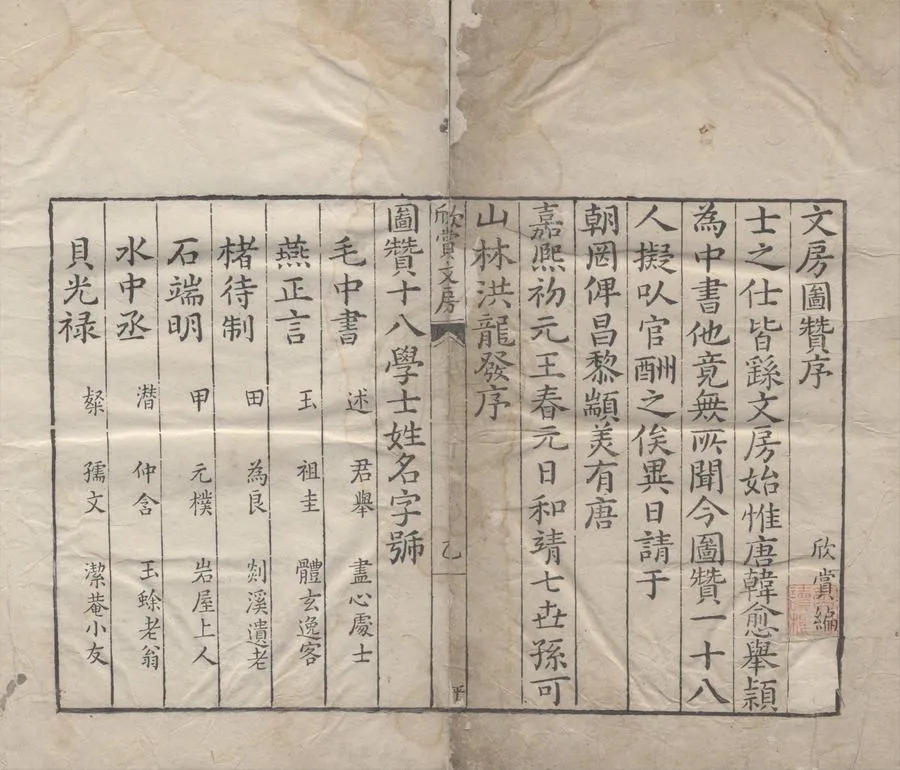 文房圖贊序
欣賞編
士之仕皆繇文房始惟唐韓愈舉穎
為中書他竟無所聞今圖贊一十八
人擬以官酬之俟異日請于
朝罔俾昌黎顓美有唐
嘉熙初元王春元日和靖七世孫可
山林洪龍發序
欣賞文房
乙
平
圖贊十八學士姓名字號
毛中書 述 君舉 盡心處士
燕正言 玉 祖圭 體玄逸客
楮待制 田 為良 剡溪遺老
石端明 甲 元樸 岩屋上人
水中丞 潛 仲含 玉蜍老翁
貝光祿 粲 孺文 潔菴小友